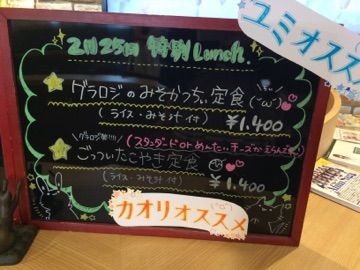 ユミオスス
2月25日 特別 Lunch.
グラロジのみそかつちぃ定食 (･ω･)
(ライス・みそ汁付) ¥1.400
グラロジ発!!!! (スタンダード or めんたいチーズからえらんで!)
ごっついたこやき定食
(ライス・みそ汁付) ¥1.400
カオリオススメ